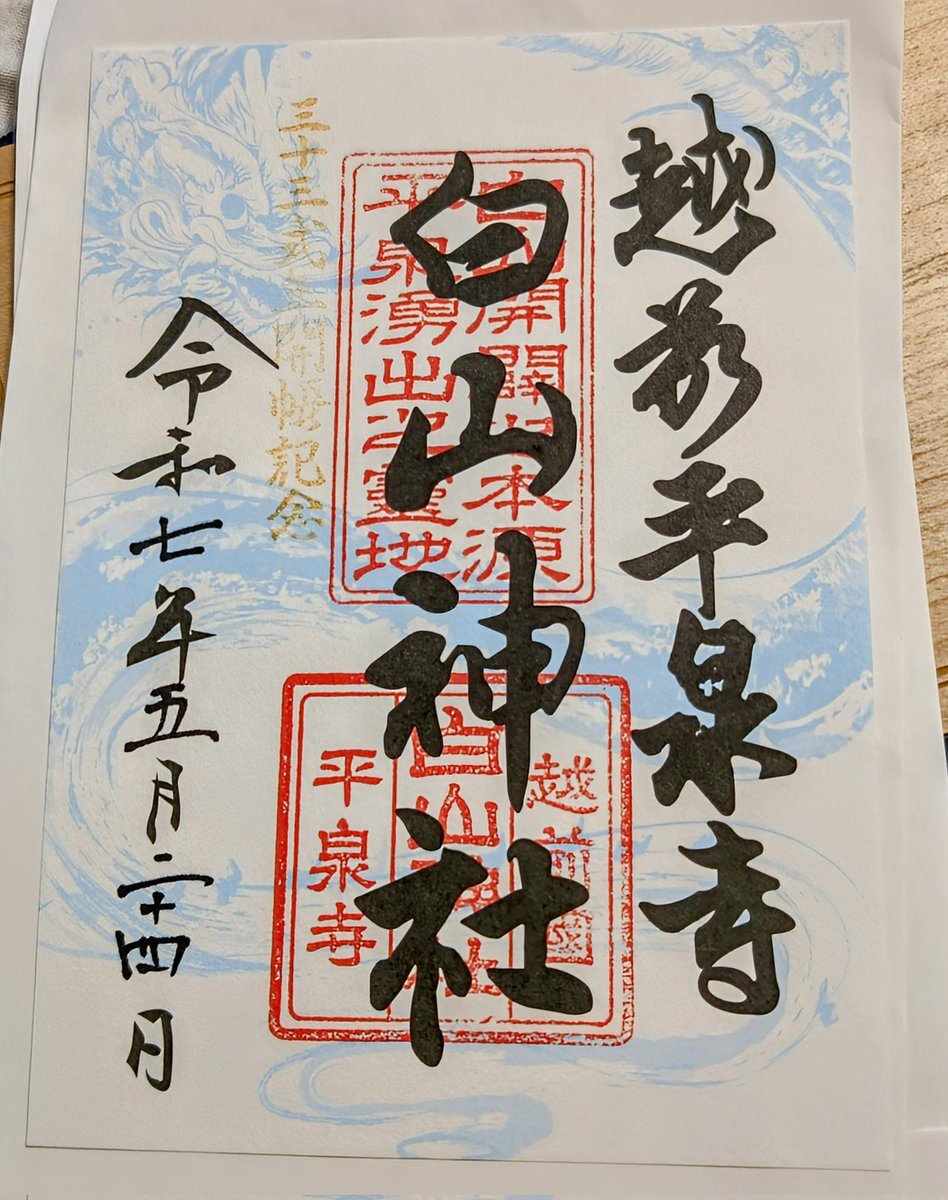 越前平泉寺
白山神社
開闢 本源
平泉湧出之靈地
越前國
白山神社
平泉寺
三十三式 開帳記念
令和七年五月二十四日